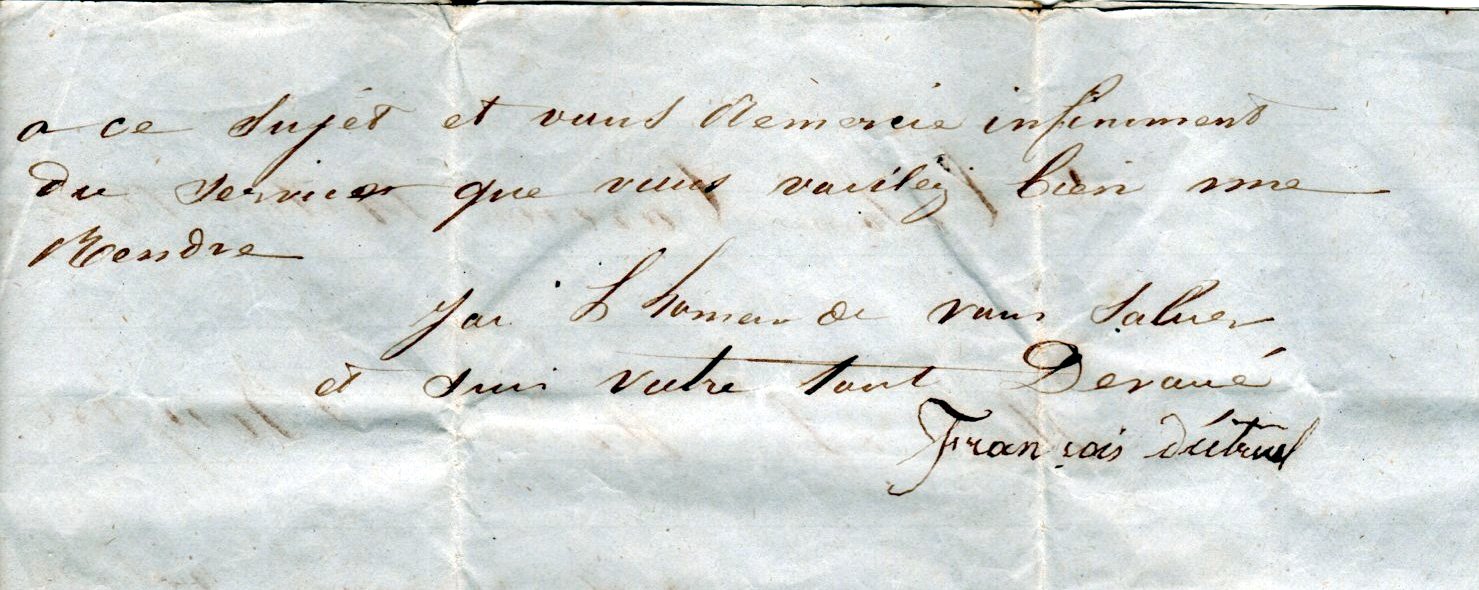 a ce sujet et vous Remercie infiniment
du service que vous voulez bien me
Rendre
J'ai L'honneur de vous Saluer
et suis votre tout Dévoué
François